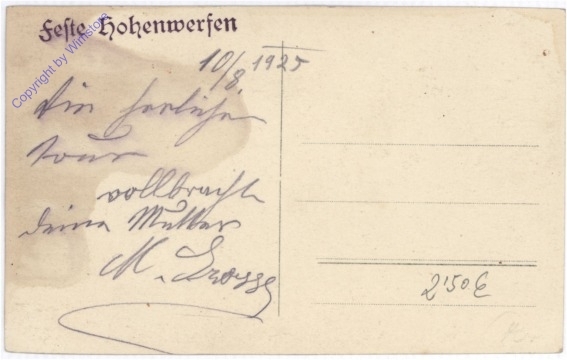 Feste Hohenwerfen
Copyright by Winstore
10/8. 1925
Ein herlicher
tour
vollbracht
deine Mutter
M.
2'50 €